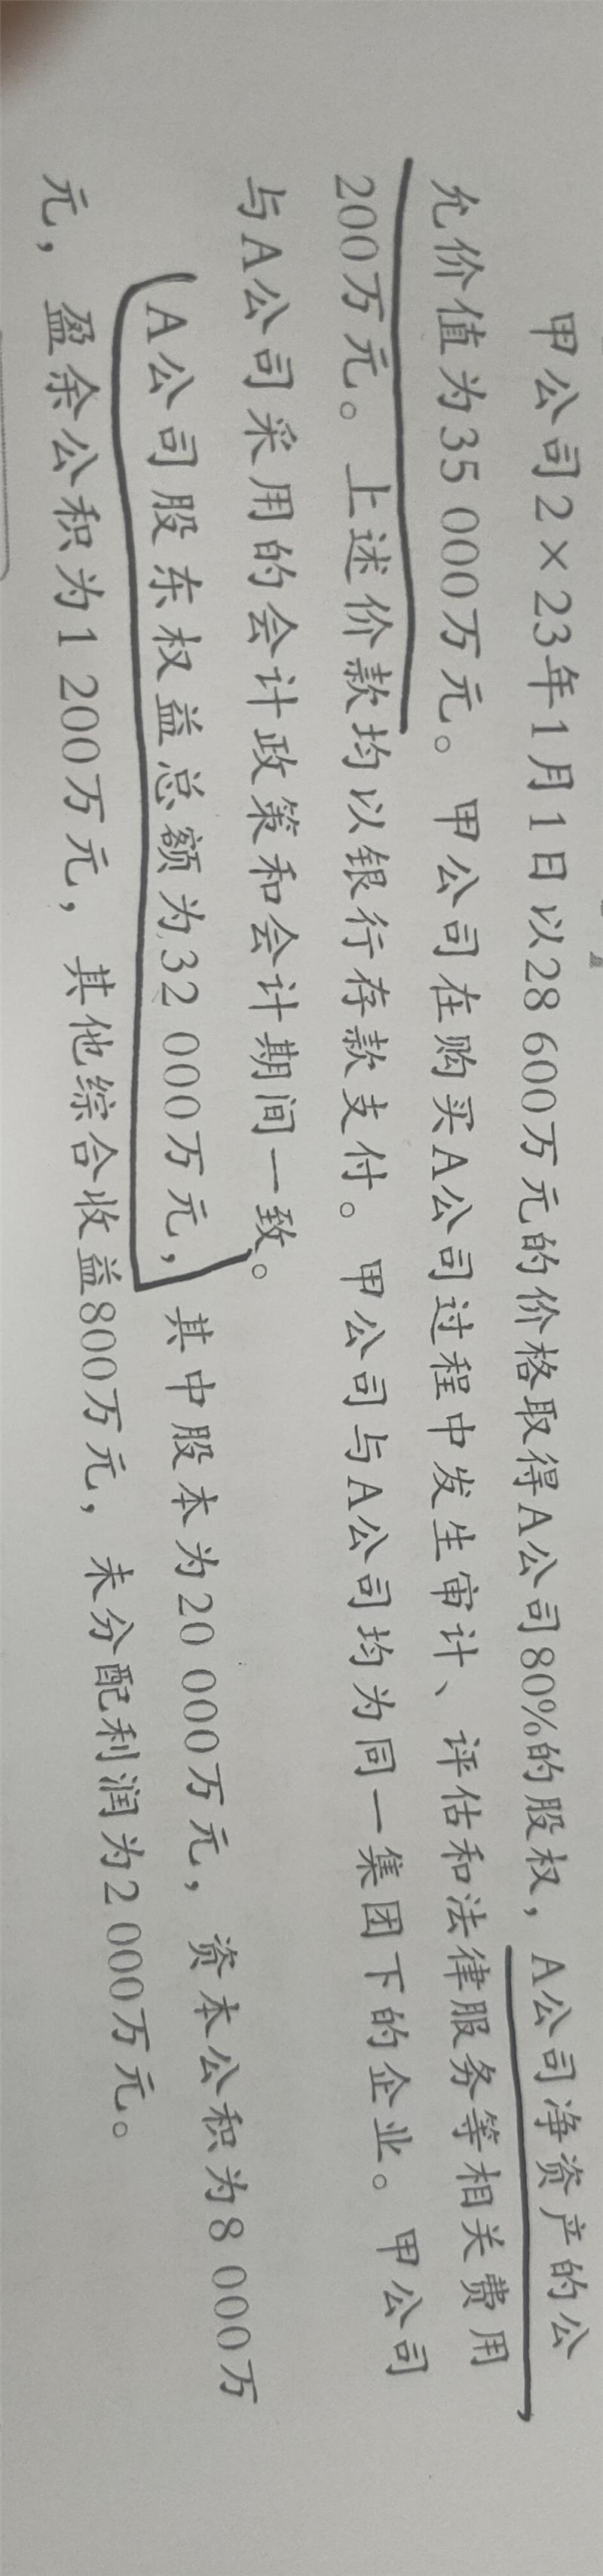 甲公司2×23年1月1日以28 600万元的价格取得A公司80%的股权，A公司净资产的公
允价值为35 000万元。甲公司在购买A公司过程中发生审计、评估和法律服务等相关费用
200万元。上述价款均以银行存款支付。甲公司与A公司均为同一集团下的企业。甲公司
与A公司采用的会计政策和会计期间一致。
A公司股东权益总额为32 000万元，其中股本为20 000万元，资本公积为8 000万
元，盈余公积为1 200万元，其他综合收益800万元，未分配利润为2 000万元。